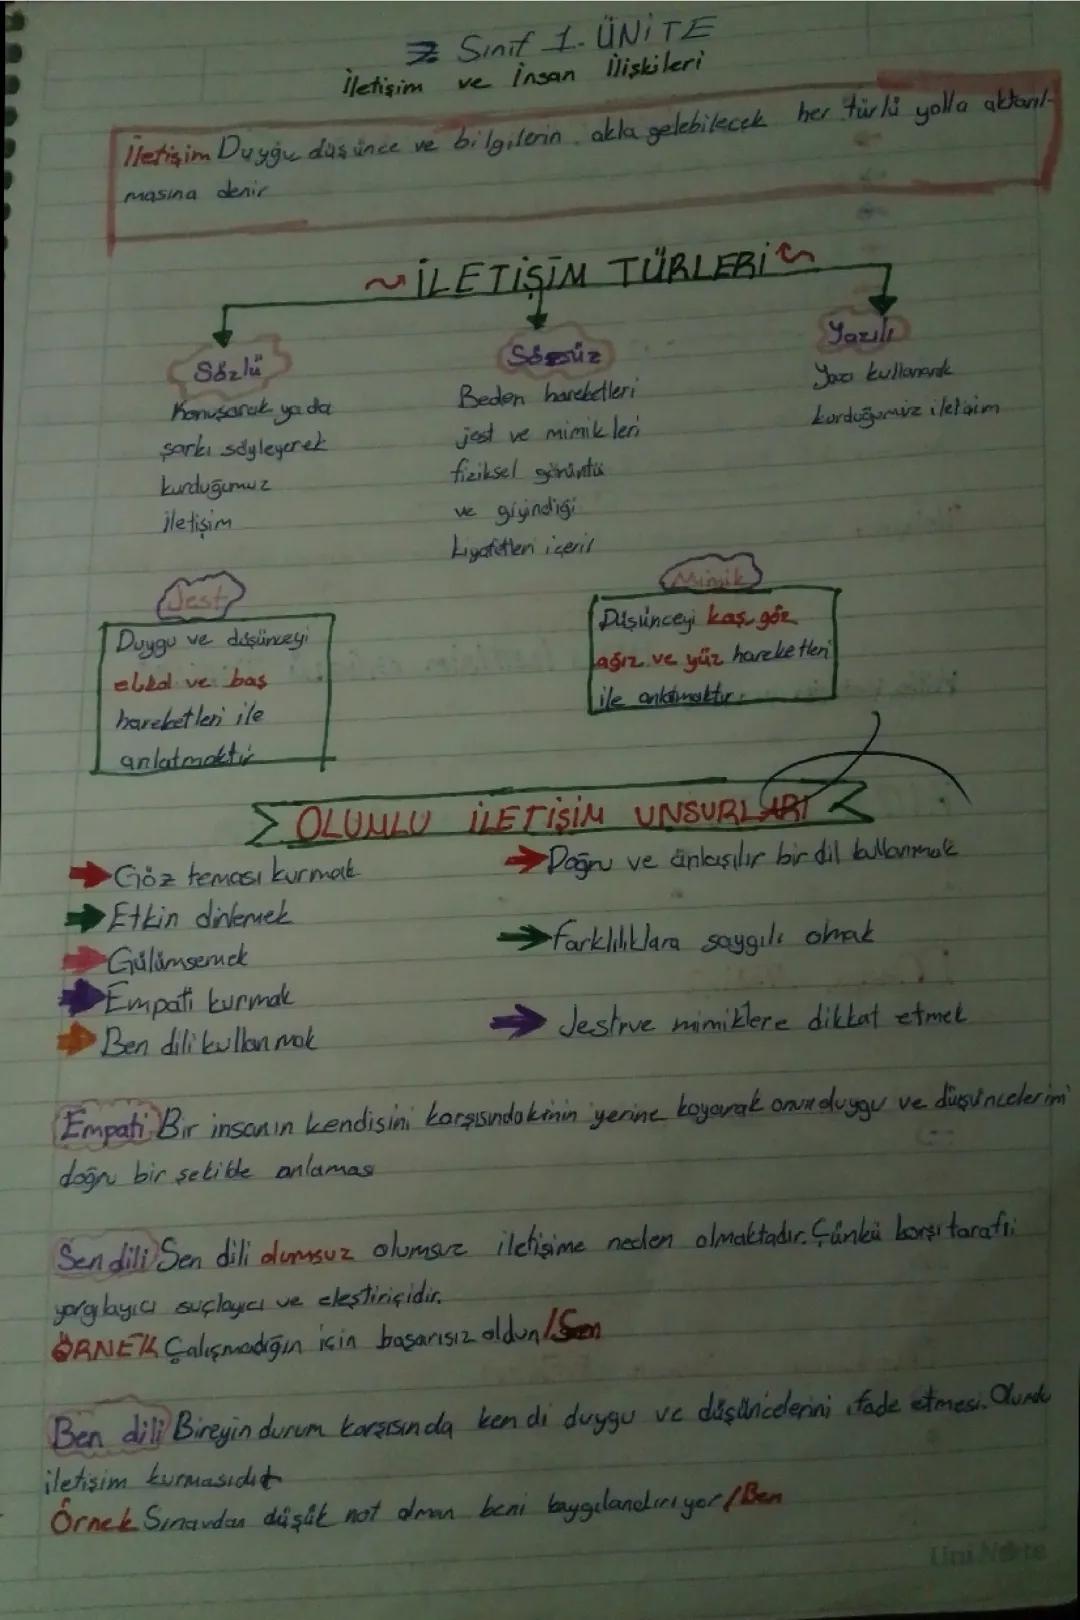 7. Sınıf 1. ÜNİTE
İletişim ve İnsan İlişkileri
İletişim Duygu düşünce ve bilgilerin akla gelebilecek her türlü yolla aktarıl-
masına denir
İLETİŞİM TÜRLERİ
Sözlü
Konuşarak ya da
şarkı söyleyerek
kurduğumuz
iletişim
Sözsüz
Beden hareketleri
jest ve mimikleri
fiziksel görüntü
ve giyindiği
kıyafetleri içerir
Yazılı
Yazı kullanarak
kurduğumuz iletişim
Jest
Duygu ve düşünceyi
el kol ve baş
hareketleri ile
anlatmaktır
Mimik
Düşünceyi kaş göz
ağız ve yüz hareketleri
ile anlatmaktır.
OLUMLU İLETİŞİM UNSURLARI
Göz teması kurmak
Etkin dinlemek
Gülümsemek
Empati kurmak
Ben dili kullanmak
Doğru ve anlaşılır bir dil kullanmak
Farklılıklara saygılı olmak
Jest ve mimiklere dikkat etmek
Empati Bir insanın kendisini karşısındakinin yerine koyarak onun duygu ve düşüncelerini
doğru bir şekilde anlaması
Sen dili Sen dili olumsuz olumsuz iletişime neden olmaktadır. Çünkü karşı tarafı
yargılayıcı suçlayıcı ve eleştiriçidir.
ÖRNEK Çalışmadığın için başarısız oldun / Sen
Ben dili Bireyin durum karşısında kendi duygu ve düşüncelerini ifade etmesi. Olumlu
iletişim kurmasıdır
Örnek Sınavdan düşük not alman beni kaygılandırıyor / Ben
Uni Note